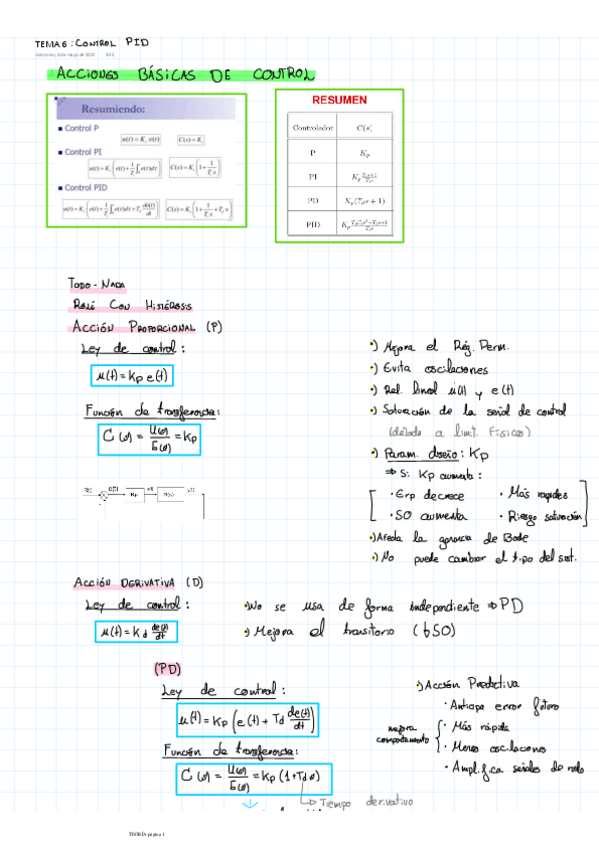 TEMA 6: CONTROL PID
ACCIONES BÁSICAS DE CONTROL
Resumiendo:
Control P
u(t) = K e(t)
C(s) = K
Control PI
Control PID
RESUMEN
Controlador C(s)
P K_p
PI
PD K_p(T_d s + 1)
PID
TODO-NADA
RELÉ CON HISTÉRESIS
ACCIÓN PROPORCIONAL (P)
Ley de control:
u(t) = Kp e(t)
Función de transferencia:
C(s) = U(s)/E(s) = Kp
•) Mejora el Rég. Perm.
•) Evita oscilaciones
•) Rel. lineal u(t) y e(t)
•) Saturación de la señal de control
(debido a limit. Físicos)
•) Param. diseño: Kp
⇒ Si Kp aumenta:
• Erp decrece • Más rápides
• SO aumenta • Riesgo saturación
•) Afecta la ganancia de Bode
•) No puede cambiar el tipo del sist.
ACCIÓN DERIVATIVA (D)
Ley de control:
u(t) = Kd de(t)/dt
•) No se usa de forma independiente ⇒ PD
•) Mejora el transitorio (↓SO)
(PD)
Ley de control:
u(t) = Kp (e(t) + Td de(t)/dt)
Función de transferencia:
C(s) = U(s)/E(s) = Kp (1+Td s)
Tiempo derivativo
•) Acción Predictiva
• Anticipa error futuro
mejora comportamiento
• Más rápida
• Menos oscilaciones
• Amplifica señales de ruido
TEORÍA página 1